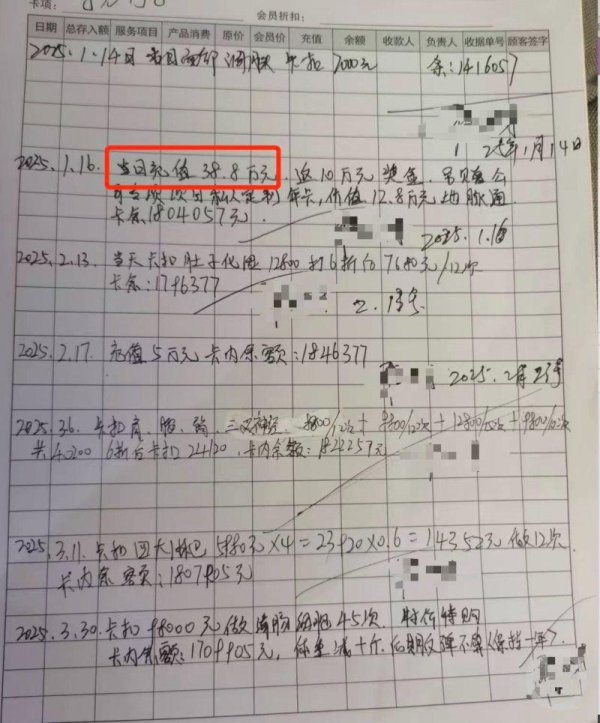 卡项:
会员折扣:
日期 总存入额 服务项目 产品消费 原价 会员价 充值 余额 收款人 负责人 收据单号 顾客签字
2025.1.14日 当日 卡扣 7000元 余:1416057
25年1月14日
2025.1.16. 当日充值38.8万元. 返10万元奖金.
项目私人定制年卡,价值12.8万元 脉通
卡余1804057元.
2025.1.16
2025.2.13 当天卡扣肚子 12800打6折后7680元/12次
卡余:1796377
2.13号
2025.2.17. 充值5万元 卡内余额:1846377
2025.2月
2025.3.6. 卡扣肩、腰、 9800/12次+12800/12次+9800/12次
共40200 6折后卡扣24120.卡内余额:1822257元.
2025.3.11.卡扣四大淋巴5980元×4=23920×0.6=14352元 做12次
卡内余额:1807905元
2025.3.30.卡扣98000元做 45次. 特价特购
卡内余额:1709905元, 十斤.后期反弹不算(保持一年).